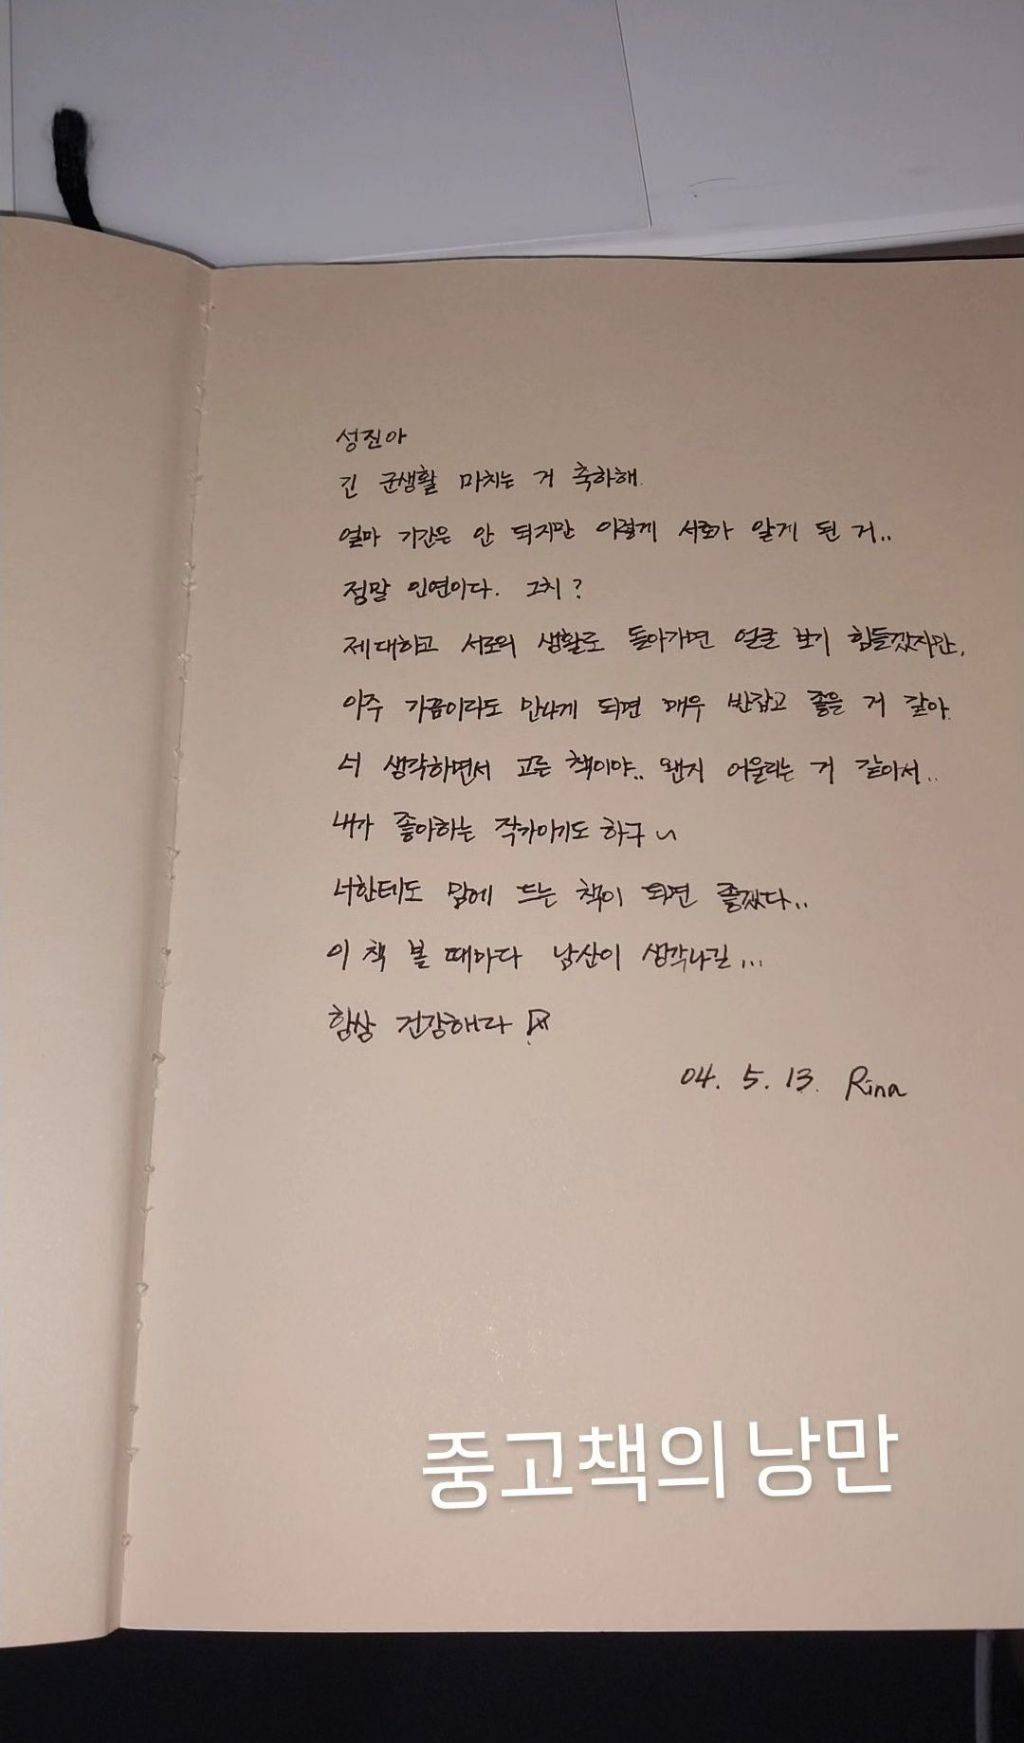 성진아
긴 군생활 마치는 거 축하해.
얼마 기간은 안 되지만 이렇게 서로가 알게 된 거..
정말 인연이다. 그치?
제대하고 서로의 생활로 돌아가면 얼굴 보기 힘들겠지만,
아주 가끔이라도 만나게 되면 매우 반갑고 좋을 거 같아.
너 생각하면서 고른 책이야.. 왠지 어울리는 거 같아서..
내가 좋아하는 작가이기도 하구~
너한테도 맘에 드는 책이 되면 좋겠다..
이 책 볼 때마다 남산이 생각나길...
항상 건강해라
04. 5. 13. Rina
중고책의 낭만